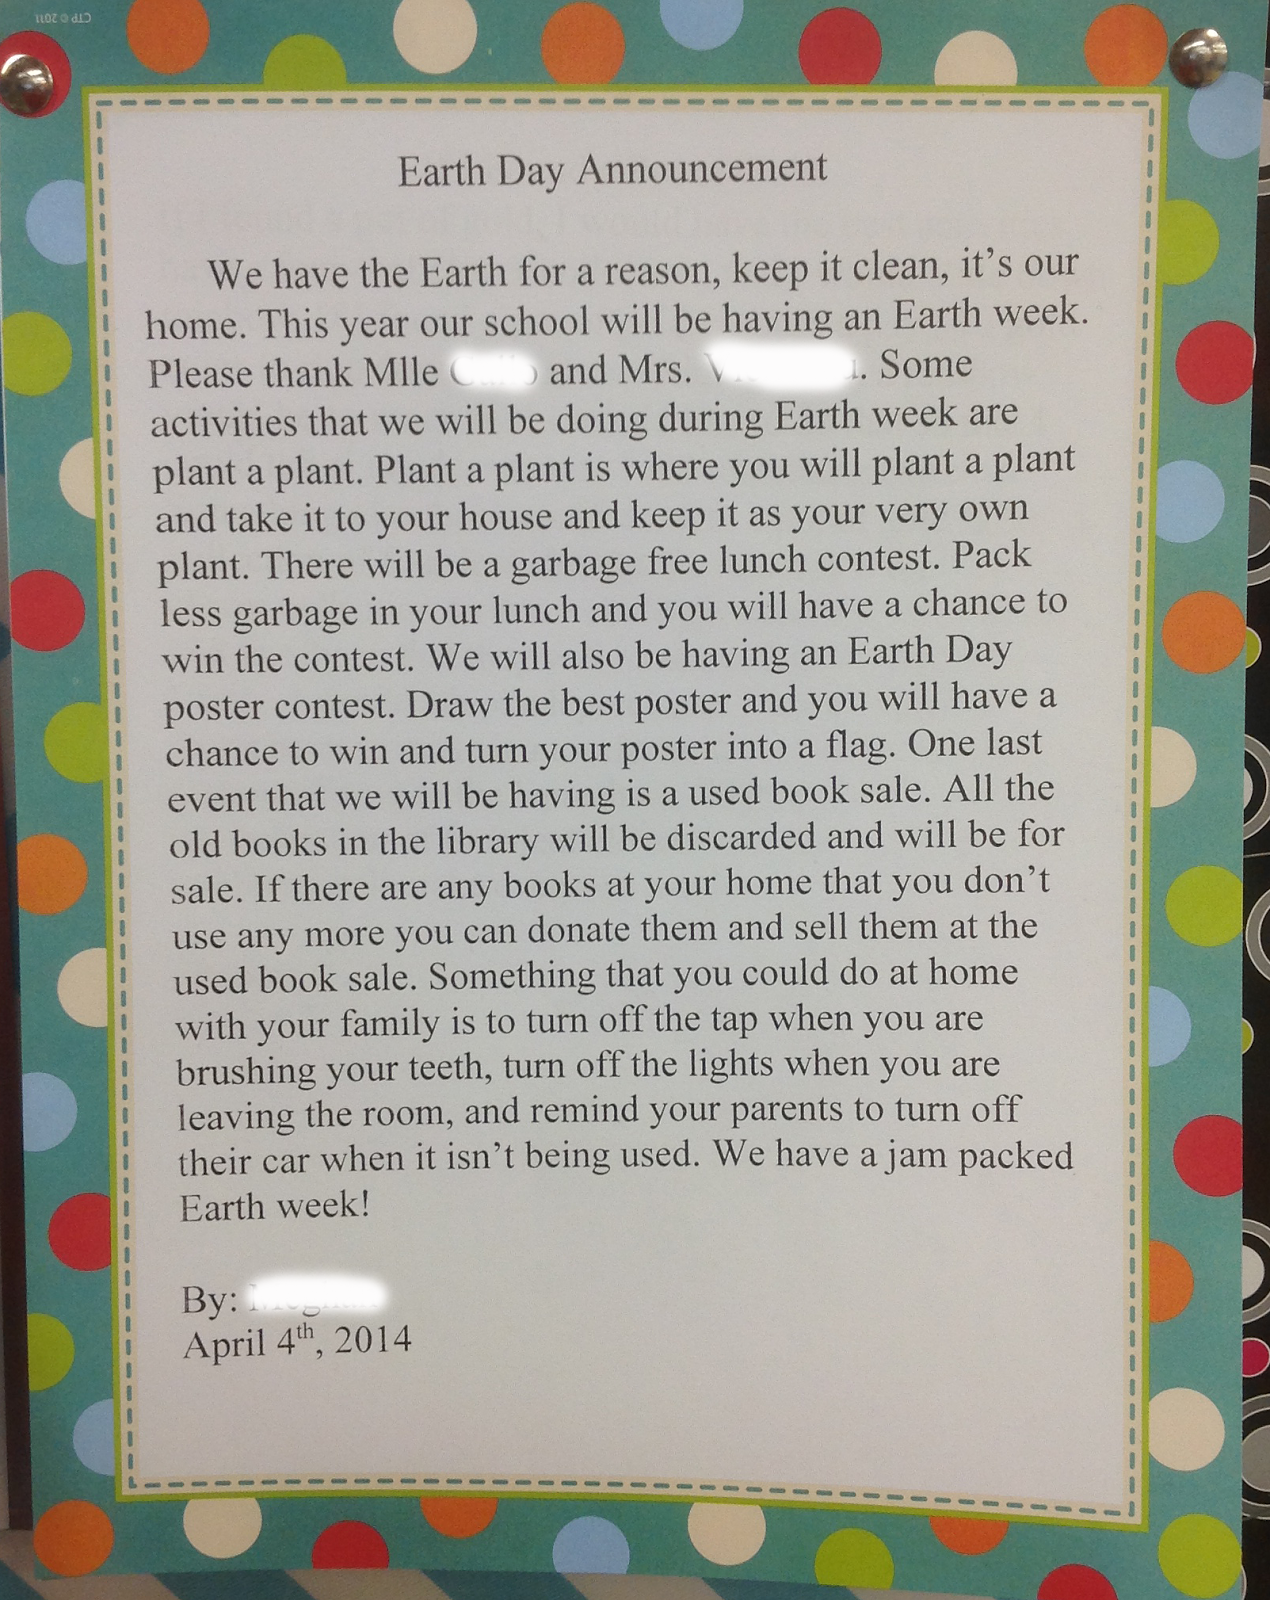 CTP © 2011
Earth Day Announcement
We have the Earth for a reason, keep it clean, it's our
home. This year our school will be having an Earth week.
Please thank Mlle and Mrs. . Some
activities that we will be doing during Earth week are
plant a plant. Plant a plant is where you will plant a plant
and take it to your house and keep it as your very own
plant. There will be a garbage free lunch contest. Pack
less garbage in your lunch and you will have a chance to
win the contest. We will also be having an Earth Day
poster contest. Draw the best poster and you will have a
chance to win and turn your poster into a flag. One last
event that we will be having is a used book sale. All the
old books in the library will be discarded and will be for
sale. If there are any books at your home that you don't
use any more you can donate them and sell them at the
used book sale. Something that you could do at home
with your family is to turn off the tap when you are
brushing your teeth, turn off the lights when you are
leaving the room, and remind your parents to turn off
their car when it isn't being used. We have a jam packed
Earth week!
By:
April 4th, 2014